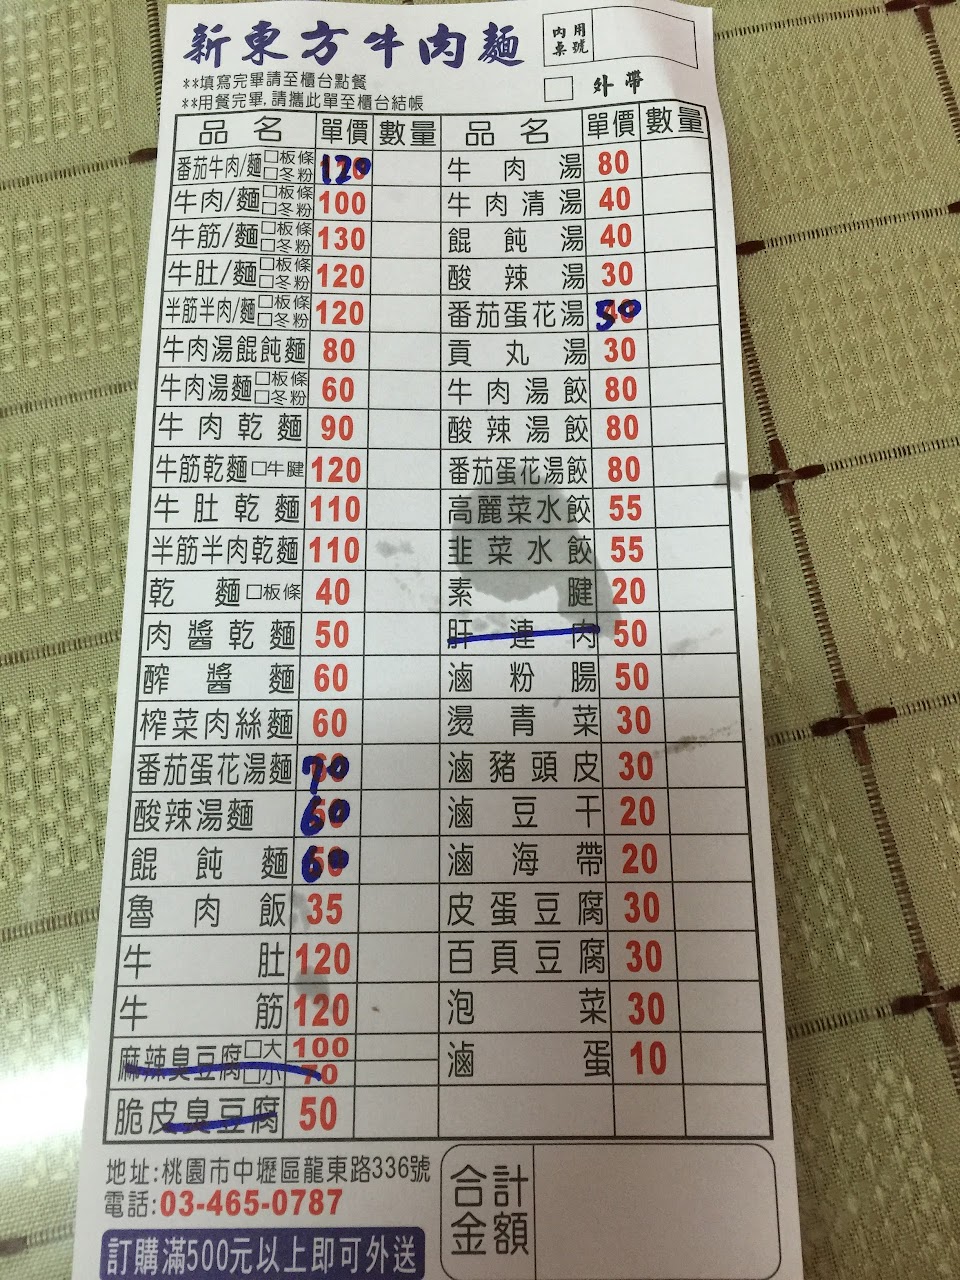 新東方牛肉麵
內用桌號
**填寫完畢請至櫃台點餐
**用餐完畢,請攜此單至櫃台結帳
□ 外帶
品名 單價 數量 品名 單價 數量
番茄牛肉/麵 □板條 □冬粉 120 牛肉湯 80
牛肉/麵 □板條 □冬粉 100 牛肉清湯 40
牛筋/麵 □板條 □冬粉 130 餛飩湯 40
牛肚/麵 □板條 □冬粉 120 酸辣湯 30
半筋半肉/麵 □板條 □冬粉 120 番茄蛋花湯 50
牛肉湯餛飩麵 80 貢丸湯 30
牛肉湯麵 □板條 □冬粉 60 牛肉湯餃 80
牛肉乾麵 90 酸辣湯餃 80
牛筋乾麵 □牛腱 120 番茄蛋花湯餃 80
牛肚乾麵 110 高麗菜水餃 55
半筋半肉乾麵 110 韭菜水餃 55
乾麵 □板條 40 素腱 20
肉醬乾麵 50 肝連肉 50
醡醬麵 60 滷粉腸 50
榨菜肉絲麵 60 燙青菜 30
番茄蛋花湯麵 70 滷豬頭皮 30
酸辣湯麵 60 滷豆干 20
餛飩麵 60 滷海帶 20
魯肉飯 35 皮蛋豆腐 30
牛肚 120 百頁豆腐 30
牛筋 120 泡菜 30
麻辣臭豆腐 □大 100 □小 70 滷蛋 10
脆皮臭豆腐 50
地址:桃園市中壢區龍東路336號
電話:03-465-0787
訂購滿500元以上即可外送
合計金額